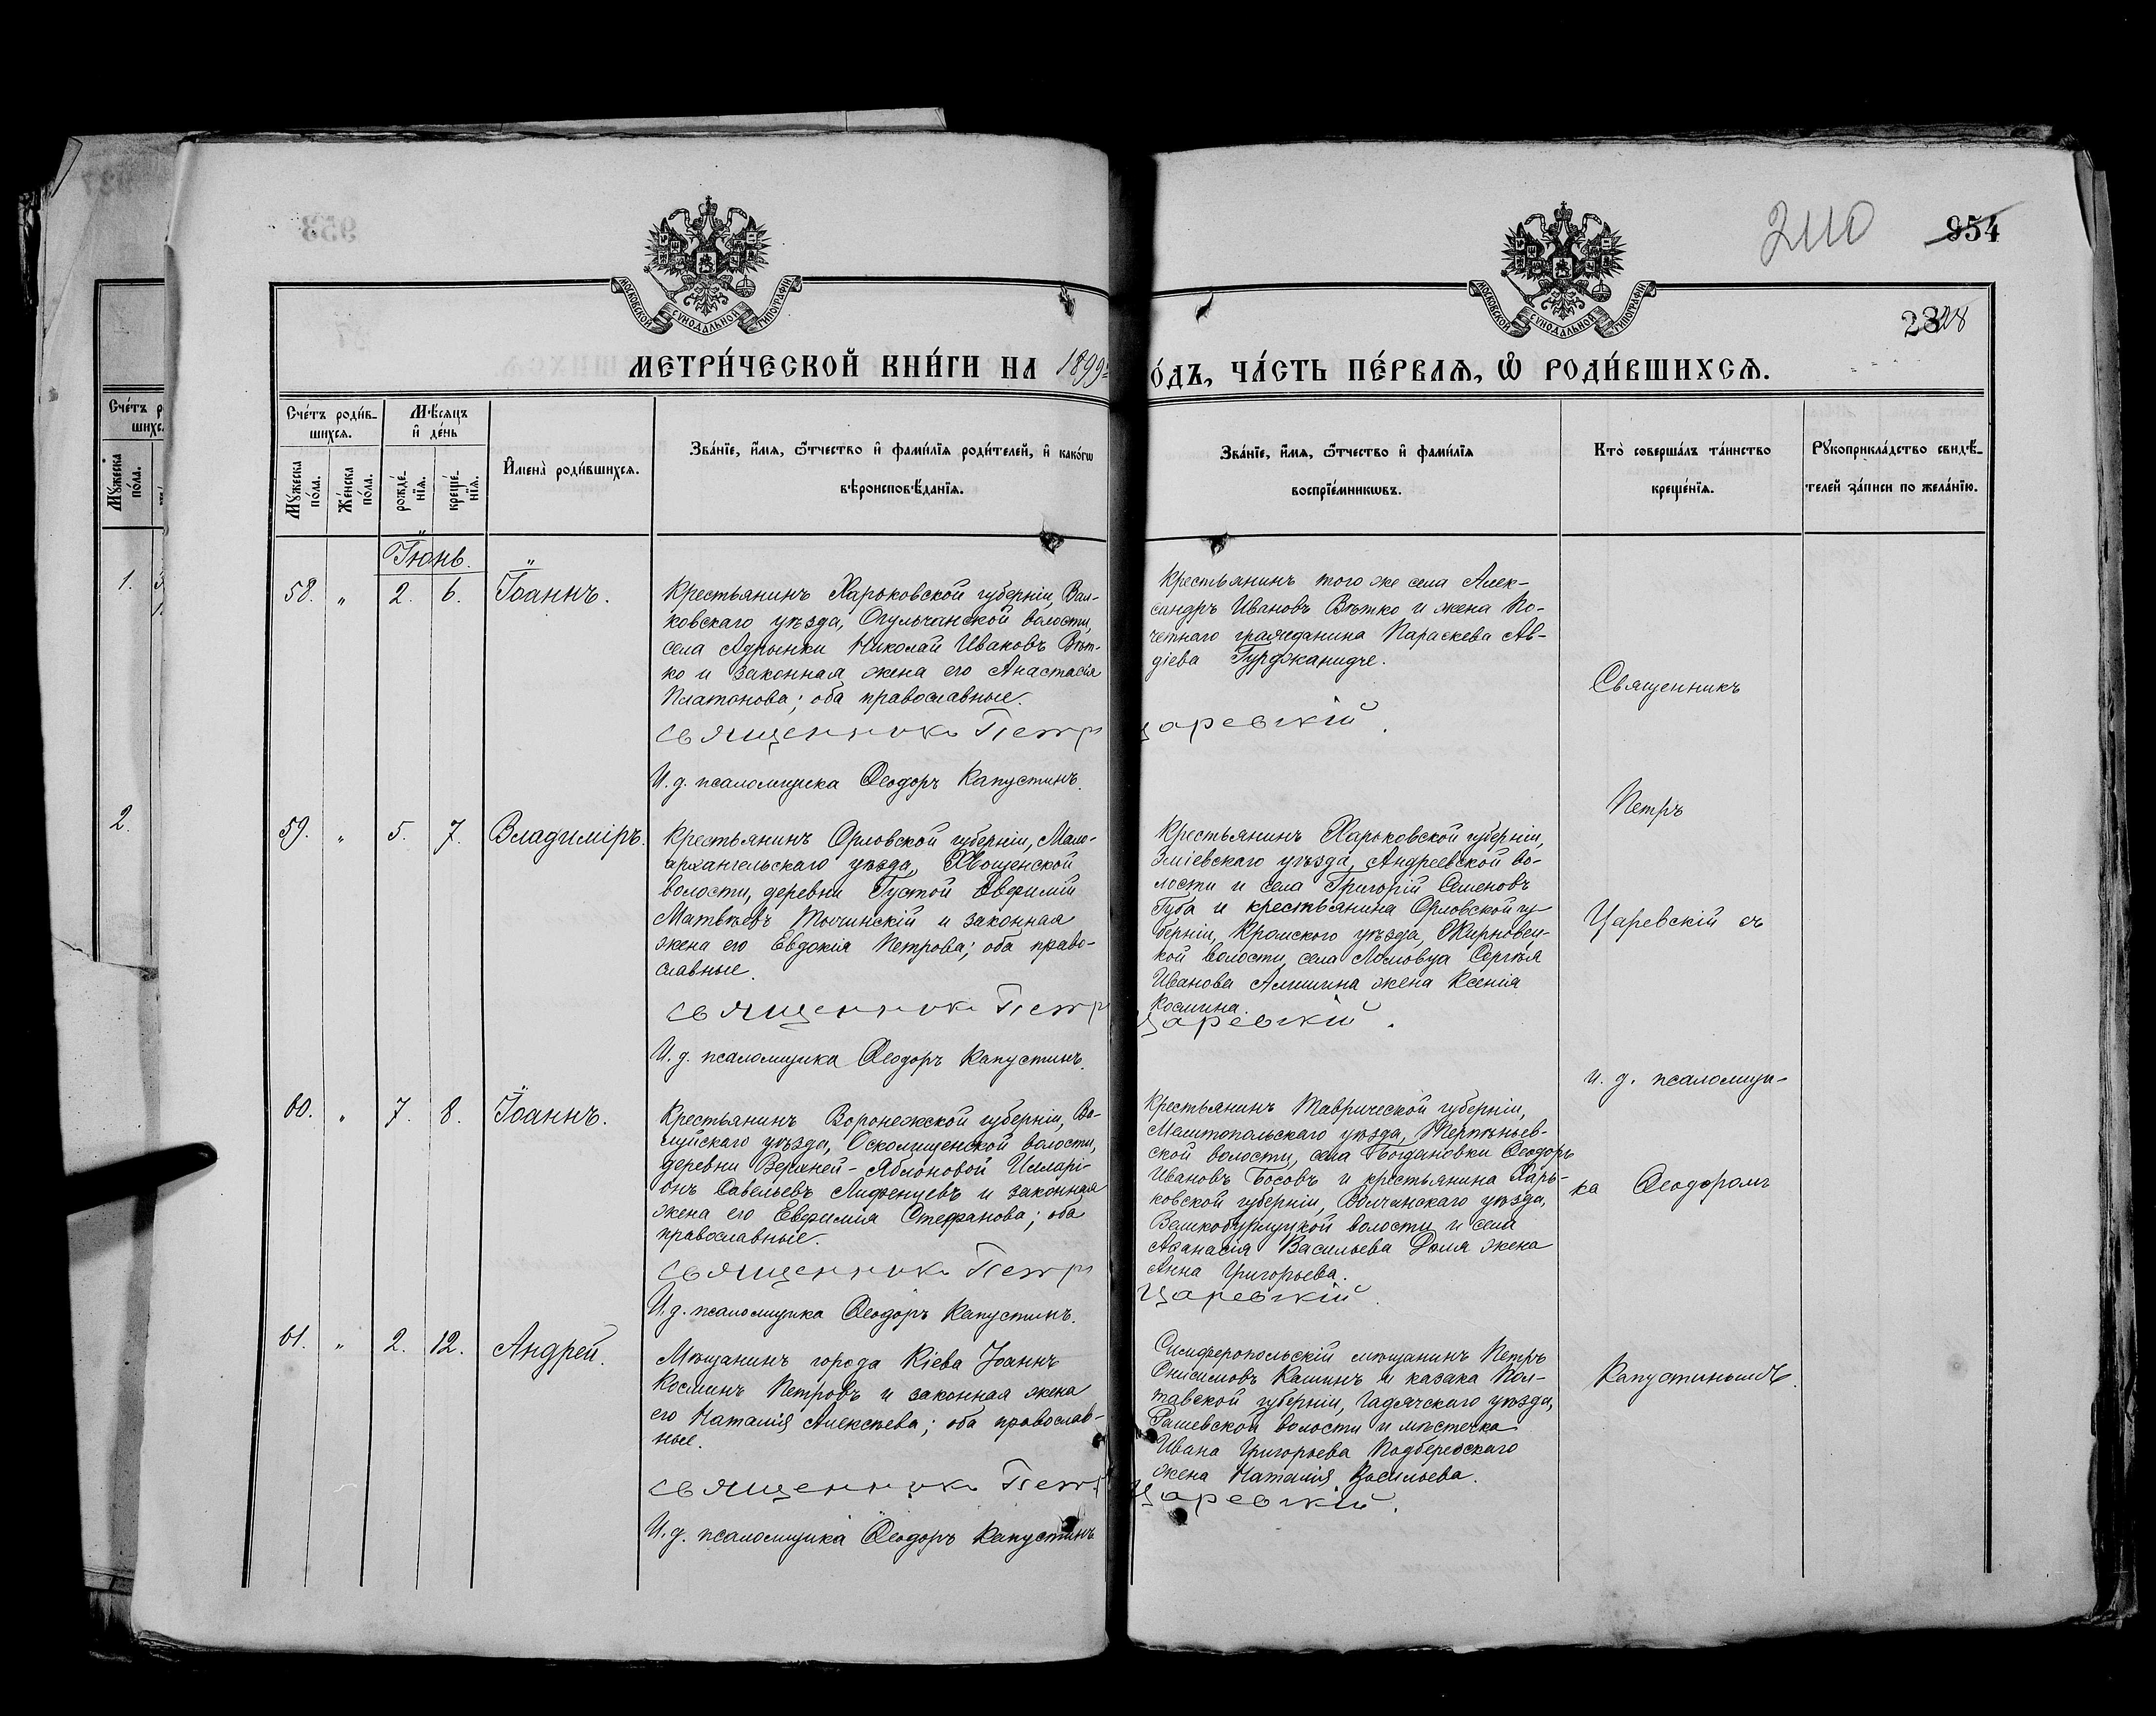 2110
954
2328
МОСКОВСКОЙ СѴНОДАЛЬНОЙ ТИПОГРАФІИ
МОСКОВСКОЙ СѴНОДАЛЬНОЙ ТИПОГРАФІИ
МЕТРИ́ЧЕСКОЙ КНИ́ГИ НА 1899 г
О́ДЪ, ЧА́СТЬ ПЕ́РВАѦ, Ѿ РОДИ́ВШИХСѦ.
Сче́тъ роди́в-
шихсѧ.
Мѣ́сѧцъ
и҆ де́нь
Мꙋ́жеска по́ла.
Же́нска по́ла.
рожде́-нїѧ.
креще́-нїѧ.
И҆мена̀ роди́вшихсѧ.
Зва́нїе, и҆́мѧ, ѻ҆́тчество и҆ фами́лїѧ роди́телей, и҆ како́гѡ
вѣроисповѣ́данїѧ.
Зва́нїе, и҆́мѧ, ѻ҆́тчество и҆ фами́лїѧ
воспрїе́мникѡвъ.
Кто̀ соверша́лъ та́инство
креще́нїѧ.
Рꙋкоприкла́дство свидѣ́-
телей за́писи по жела́нїю.
Іюнь.
58. " 2. 6. Іоаннъ.
Крестьянинъ Харьковской губерніи, Вал-
ковскаго уѣзда, Огульчанской волости,
села Адрынки Николай Ивановъ Вѣт-
ко и законная жена его Анастасія
Платонова; оба православные.
Священникъ Петръ
И. д. псаломщика Ѳеодоръ Капустинъ.
Крестьянинъ того же села Алек-
сандръ Ивановъ Вѣтко и жена По-
четнаго гражданина Параскева Ав-
діева Гурджанидче.
Царевскій.
59. " 5. 7. Владиміръ.
Крестьянинъ Орловской губерніи, Мало-
архангельскаго уѣзда, Хвощенской
волости, деревни Густой Евѳимій
Матвѣевъ Точинскій и законная
жена его Евдокія Петрова; оба право-
славные.
Священникъ Петръ
И. д. псаломщика Ѳеодоръ Капустинъ.
Крестьянинъ Харьковской губерніи,
Зміевскаго уѣзда, Андреевской во-
лости и села Григорій Семеновъ
Губа и крестьянина Орловской гу-
берніи, Кромского уѣзда, Жирновец-
кой волости, села Ломовца Сергѣя
Иванова Алишина жена Ксенія
Космина.
Царевскій.
60. " 7. 8. Іоаннъ.
Крестьянинъ Воронежской губерніи, Ва-
луйскаго уѣзда, Осколищенской волости,
деревни Верхней-Яблоновой Илларі-
онъ Савельевъ Лифенцевъ и законная
жена его Евѳимія Стефанова; оба
православные.
Священникъ Петръ
И. д. псаломщика Ѳеодоръ Капустинъ.
Крестьянинъ Таврической губерніи,
Мелитопольскаго уѣзда, Терпѣньев-
ской волости, села Богдановки Ѳеодоръ
Ивановъ Босовъ и крестьянина Харь-
ковской губерніи, Волчанскаго уѣзда,
Великобурлуцкой волости и села
Аѳанасія Васильева Доля жена
Анна Григорьева.
Царевскій.
61. " 2. 12. Андрей.
Мѣщанинъ города Кіева Іоаннъ
Косминъ Петровъ и законная жена
его Наталія Алексѣева; оба православ-
ные.
Священникъ Петръ
И. д. псаломщика Ѳеодоръ Капустинъ
Симферопольскій мѣщанинъ Петръ
Онисимовъ Калинъ и казака Пол-
тавской губерніи, Гадячскаго уѣзда,
Рашевской волости и мѣстечка
Ивана Григорьева Подбережскаго
жена Наталія Васильева.
Царевскій.
Священникъ
Петръ
Царевскій съ
и. д. псаломщи-
ка Ѳеодоромъ
Капустинымъ.
1.
2.